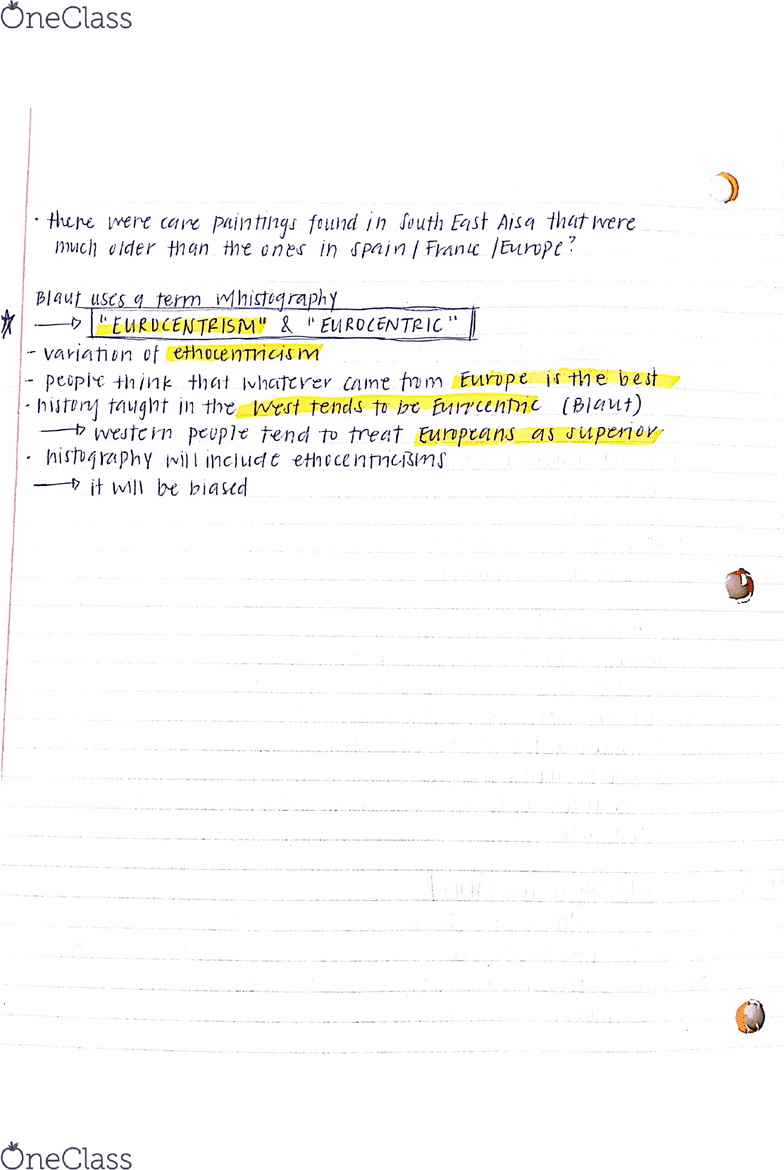 OneClass
· there were care paintings found in South East Aisa that were
much older than the ones in Spain / France / Europe?
Blaut uses a term whistography
"EUROCENTRISM" & "EUROCENTRIC"
- variation of ethocentricism
- people think that whatever came from Europe is the best
· history taught in the West tends to be Eurrcentric (Blaut)
→ western people tend to treat Europeans as superior.
· histography will include ethocentricisms
→ it will be biased
OneClass